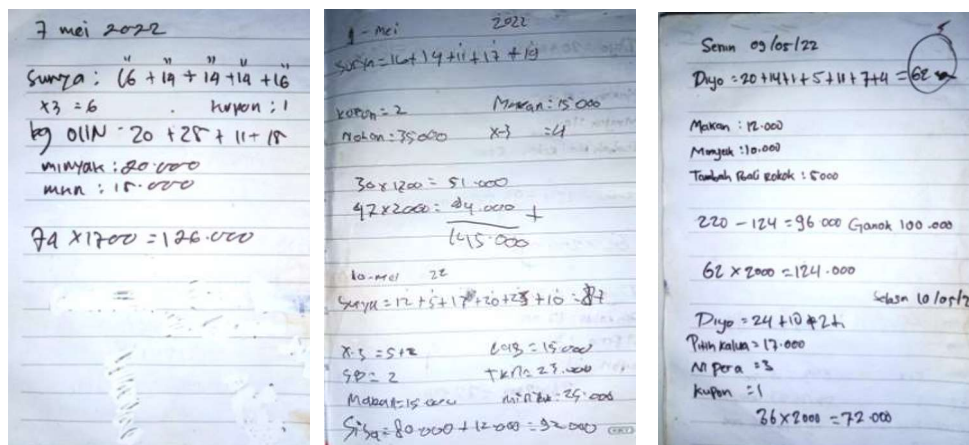 7 mei 2022
Surya : 16 + 14 + 14 + 14 + 16
x3 = 6 kupon : 1
20 + 28 + 11 + 18
minyak : 20.000
mkn : 15.000
74 x 1700 = 126.000
9 - mei 2022
Surya = 16 + 14 + 11 + 17 + 19
kupon = 2 Makan : 15 000
35000 x-3 = 4
30 x 1200 = 51.000
47 x 2000 = 94.000 +
145.000
10-mei 22
Surya = 12 + 5 + 17 + 20 + 23 + 10 = 87
x-3 = 5+2 = 15.000
= 2
Makan = 15.000 = 25.000
Sisa = 80.000 + 12.000 = 92.000
Senin 09/05/22
Diyo = 20+14+1+5+11+7+4 = 62
Makan : 12.000
Minyak : 10.000
Tambah Bali Rokok : 5000
220 - 124 = 96 000 Ganok 100.000
62 x 2000 = 124.000
Selasa 10/05/2
Diyo = 24 + 10 + 2
= 17.000
M pera = 3
Kupon = 1
36 x 2000 = 72.000